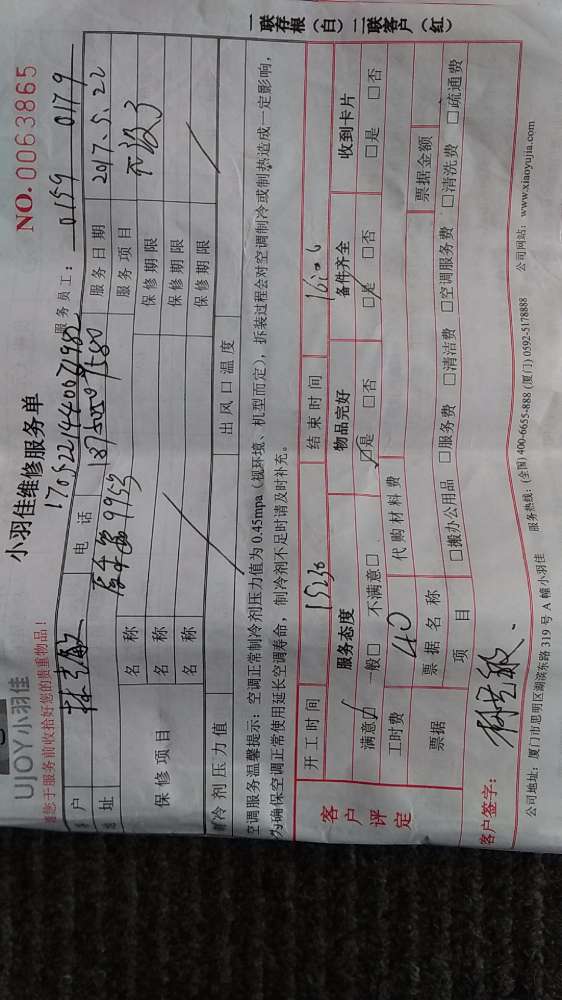 UJOY小羽佳
小羽佳维修服务单
NO.0063865
请您于服务前收拾好您的贵重物品！
服务员工： 0159 0179
户 电话 服务日期 2017.5.22
址 9953 服务项目
保修项目 名称 保修期限
名称 保修期限
名称 保修期限
制冷剂压力值 出风口温度
空调服务温馨提示：空调正常制冷剂压力值为0.45mpa（视环境、机型而定），拆装过程会对空调制冷或制热造成一定影响，
为确保空调正常使用延长空调寿命，制冷剂不足时请及时补充。
客户评定
开工时间 15:30 结束时间 16:06
服务态度 物品完好 备件齐全 收到卡片
满意□ 一般□ 不满意□ □是 □否 □是 □否 □是 □否
工时费 40 代购材料费
票据 票据名称 票据金额
项目 □搬办公用品 □服务费 □清洁费 □空调服务费 □清洗费 □疏通费
客户签字：
公司地址：厦门市思明区湖滨东路319号A幢小羽佳 服务热线：(全国) 400-6655-888 (厦门) 0592-5178888 公司网站：www.xiaoyujia.com
一联存根（白）二联客户（红）